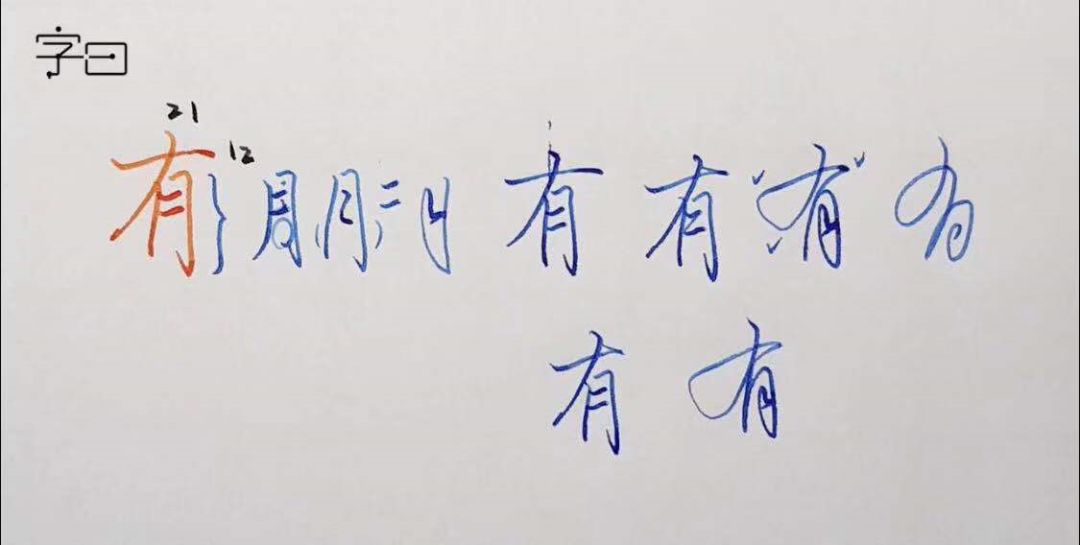 字曰
21
12
有 月 月 月 二 月 有 有 有 有
有 有